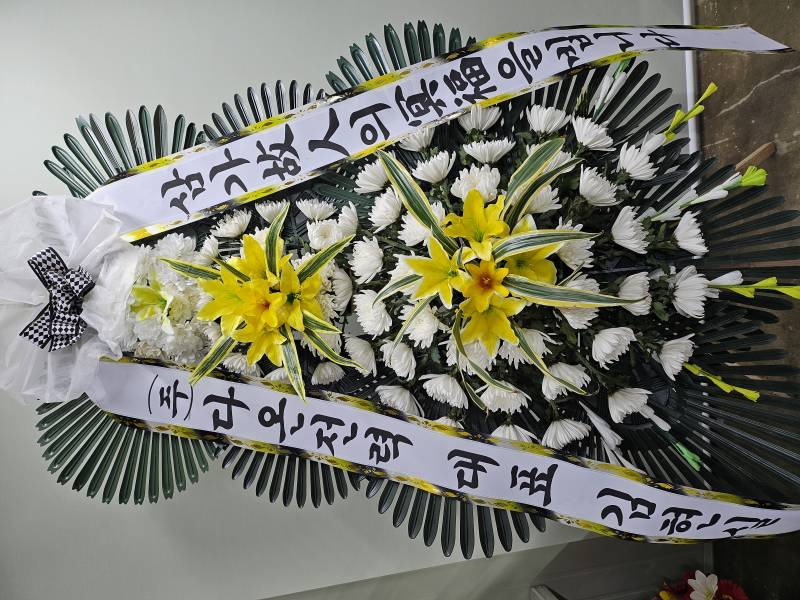 삼가 故人의 冥福을 빕니다
(주)다온전력 대표 김현실